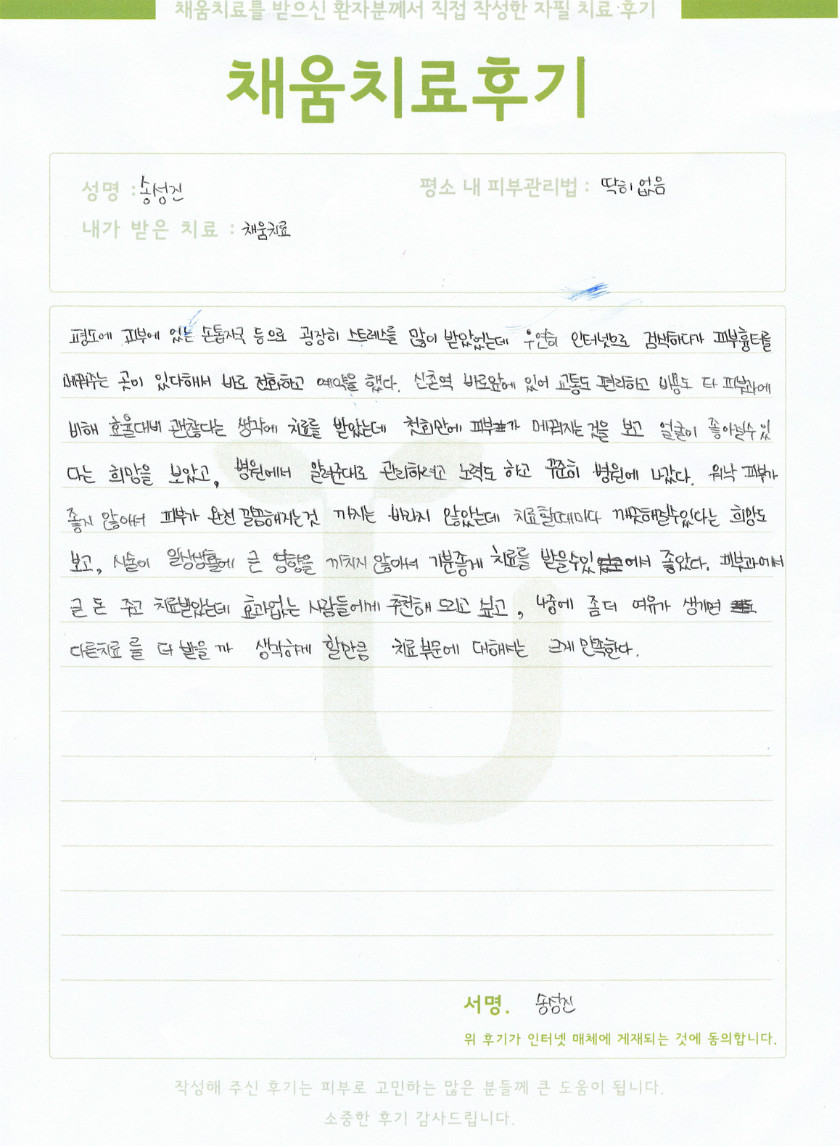 채움치료를 받으신 환자분께서 직접 작성한 자필 치료 후기
채움치료후기
성명 : 송성진
평소 내 피부관리법 : 딱히 없음
내가 받은 치료 : 채움치료
평소에 피부에 있는 손톱자국 등으로 굉장히 스트레스를 많이 받았었는데 우연히 인터넷으로 검색하다가 피부흉터를
메꿔주는 곳이 있다해서 바로 전화하고 예약을 했다. 신촌역 바로앞에 있어 교통도 편리하고 비용도 타 피부과에
비해 효율대비 괜찮다는 생각에 치료를 받았는데 첫회만에 피부가 메꿔지는 것을 보고 얼굴이 좋아질수 있
다는 희망을 보았고, 병원에서 알려준대로 관리하려고 노력도 하고 꾸준히 병원에 나갔다. 워낙 피부가
좋지 않아서 피부가 완전 깔끔해지는것 까지는 바라지 않았는데 치료할때마다 깨끗해질수있다는 희망도
보고, 시술이 일상생활에 큰 영향을 끼치지 않아서 기분좋게 치료를 받을수있어서 좋았다. 피부과에서
큰 돈 주고 치료받았는데 효과없는 사람들에게 추천해 드리고 싶고, 나중에 좀 더 여유가 생기면
다른치료를 더 받을까 생각하게 할만큼 치료부문에 대해서는 크게 만족한다.
서명. 송성진
위 후기가 인터넷 매체에 게재되는 것에 동의합니다.
작성해 주신 후기는 피부로 고민하는 많은 분들께 큰 도움이 됩니다.
소중한 후기 감사드립니다.